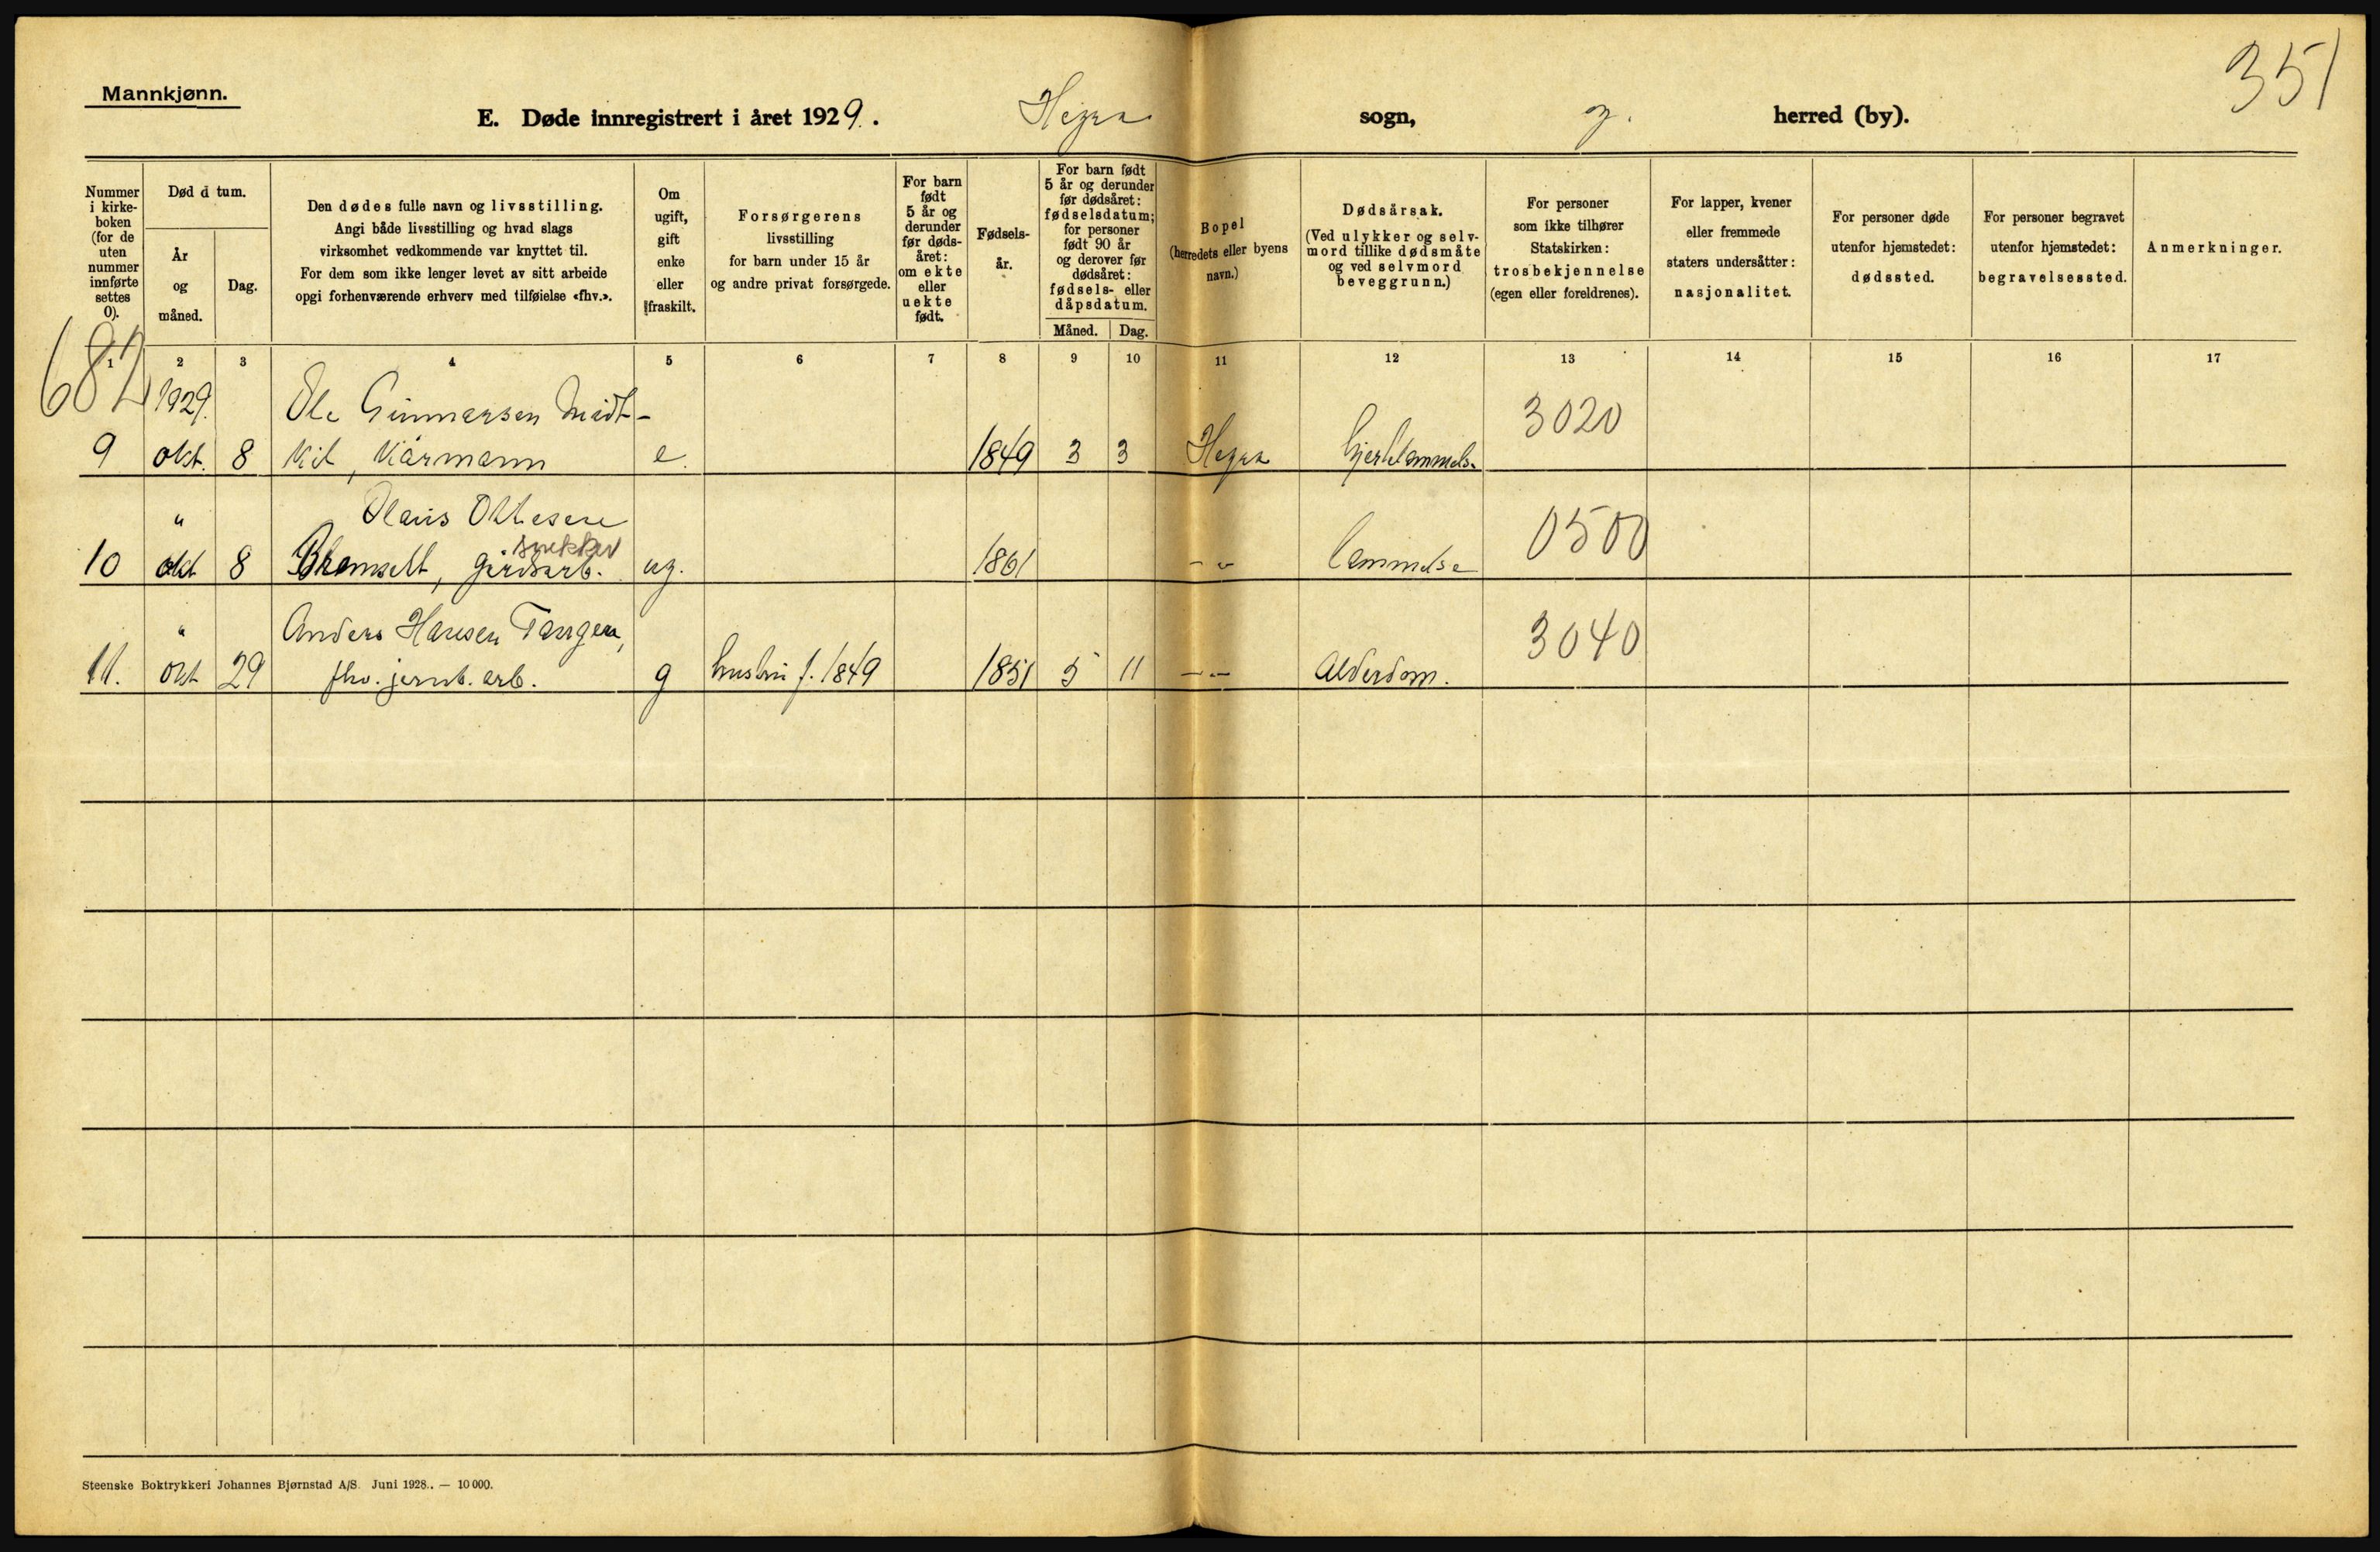 Mannkjønn.
351
E. Døde innregistrert i året 1929. Hegra sogn, herred (by).
Nummer
i kirke-
boken
(for de
uten
nummer
innførte
settes
0).
Død d tum.
År
og
måned.
Dag.
Den dødes fulle navn og livsstilling.
Angi både livsstilling og hvad slags
virksomhet vedkommende var knyttet til.
For dem som ikke lenger levet av sitt arbeide
opgi forhenværende erhverv med tilføielse «fhv.».
Om
ugift,
gift
enke
eller
fraskilt.
Forsørgerens
livsstilling
for barn under 15 år
og andre privat forsørgede.
For barn
født
5 år og
derunder
før døds-
året:
om ekte
eller
uekte
født.
Fødsels-
år.
For barn født
5 år og derunder
før dødsåret:
fødselsdatum;
for personer
født 90 år
og derover før
dødsåret:
fødsels- eller
dåpsdatum.
Måned. Dag.
Bopel
(herredets eller byens
navn.)
Dødsårsak.
(Ved ulykker og selv-
mord tillike dødsmåte
og ved selvmord
beveggrunn.)
For personer
som ikke tilhører
Statskirken:
trosbekjennelse
(egen eller foreldrenes).
For lapper, kvener
eller fremmede
staters undersåtter:
nasjonalitet.
For personer døde
utenfor hjemstedet:
dødssted.
For personer begravet
utenfor hjemstedet:
begravelsessted.
Anmerkninger.
1 2 3 4 5 6 7 8 9 10 11 12 13 14 15 16 17
1929. Ole Gunnarsen Midt- 3020
9 okt. 8 kil, kårmann e. 1849 3 3 Hegra hjertelammels.
" Olaus Ottesen 0500
snekker
10 okt 8 gårdsarb. ug. 1861 - " - lammelse
" Anders Hansen Tangen, 3040
11. okt 29 fhv. jernb. arb. g hustru f. 1849 1851 5 11 - " - Alderdom.
Steenske Boktrykkeri Johannes Bjørnstad A/S. Juni 1928.. — 10 000.